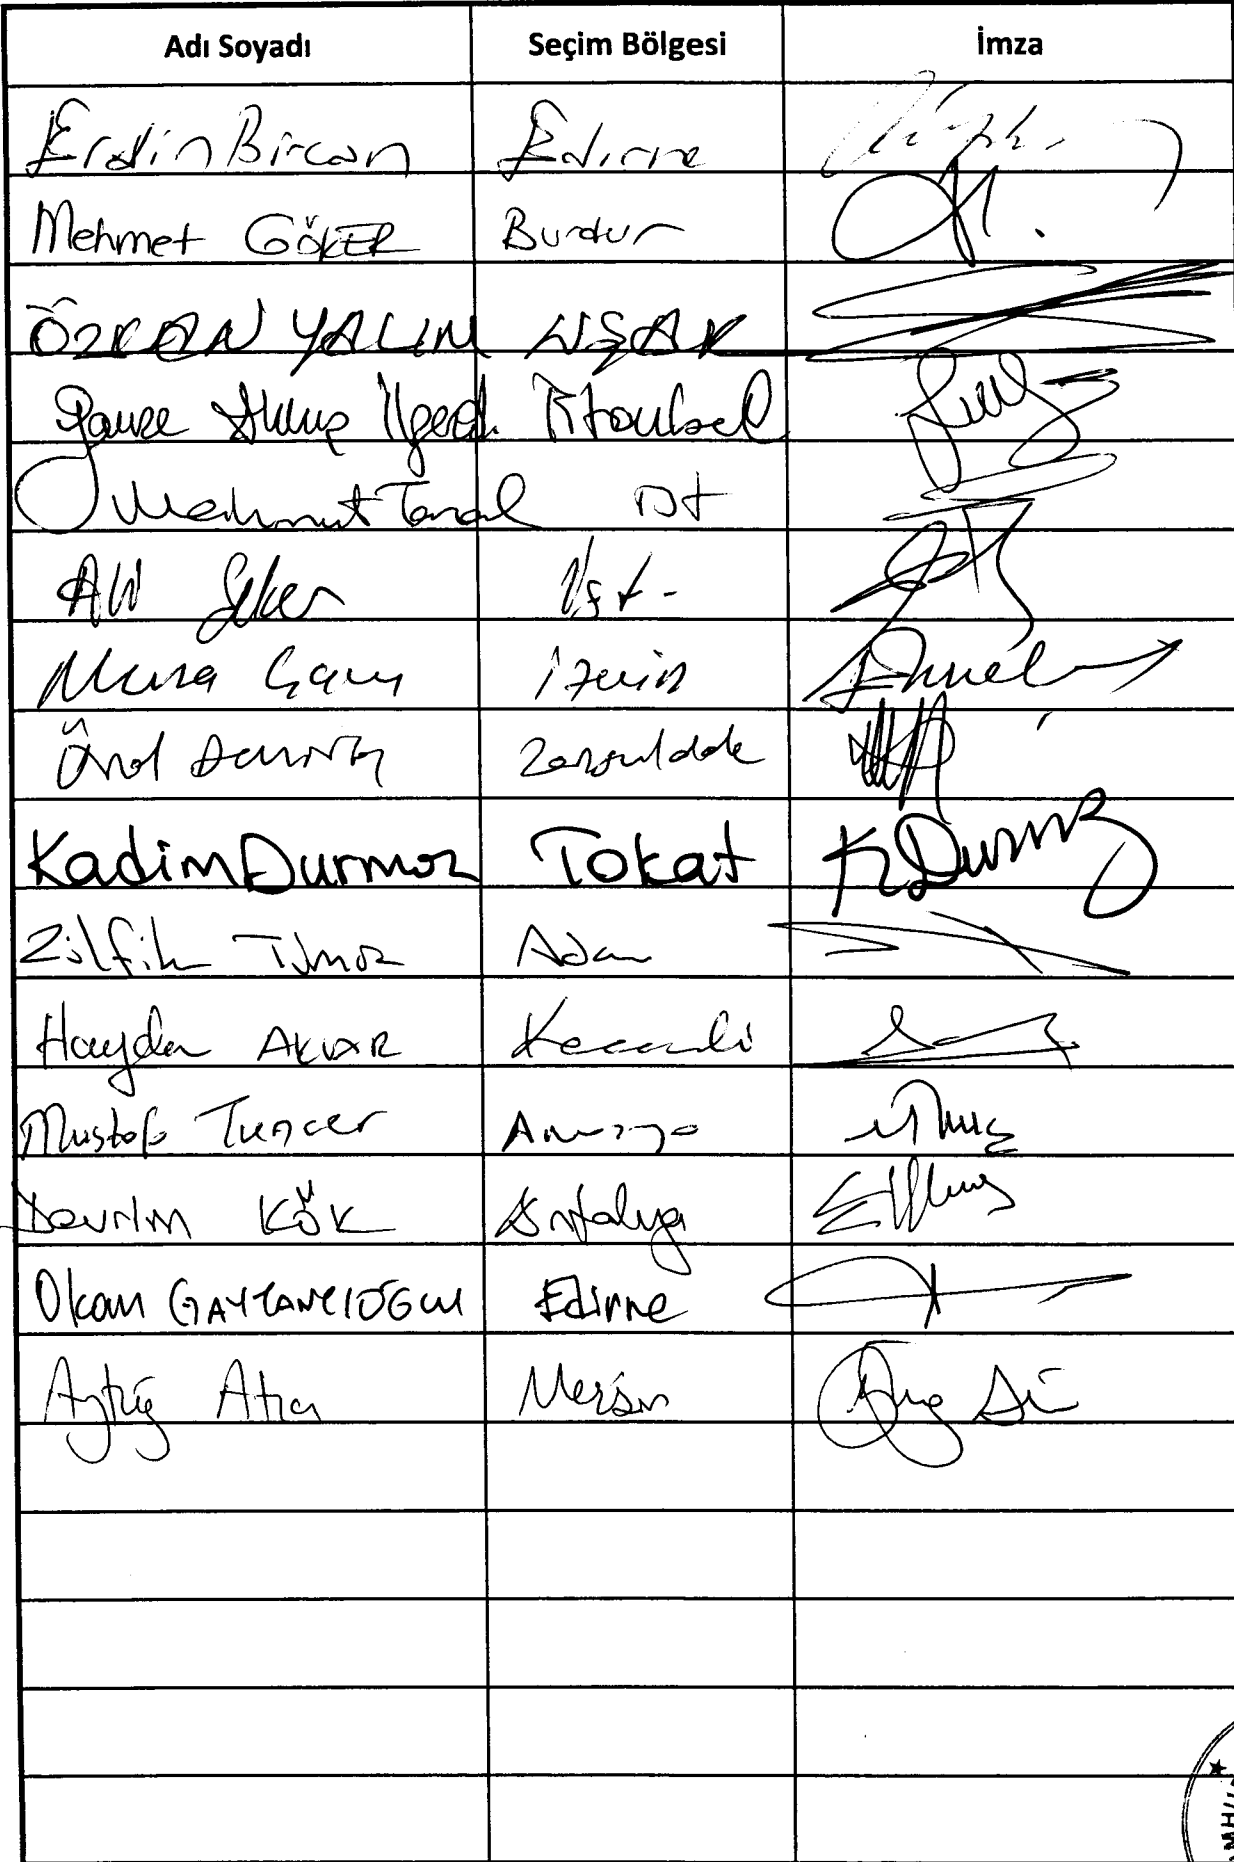 Adı Soyadı Seçim Bölgesi İmza
Erdin Bircan Edirne
Mehmet GÖKER Burdur
ÖZKAN YALIM UŞAK
Gamze Akkuş İlgezdi İstanbul
Mahmut Tanal İst
Ali Şeker İst-
Musa Çam İzmir
Ünal Demirtaş Zonguldak
Kadim Durmaz Tokat K Durmaz
Zülfik Tümor Adan
Haydar AKAR Kocaeli
Mustafa Tuncer Amasya
Devrim KÖK Antalya
Okan GAYTANCIOĞLU Edirne
Aytuğ Atıcı Mersin